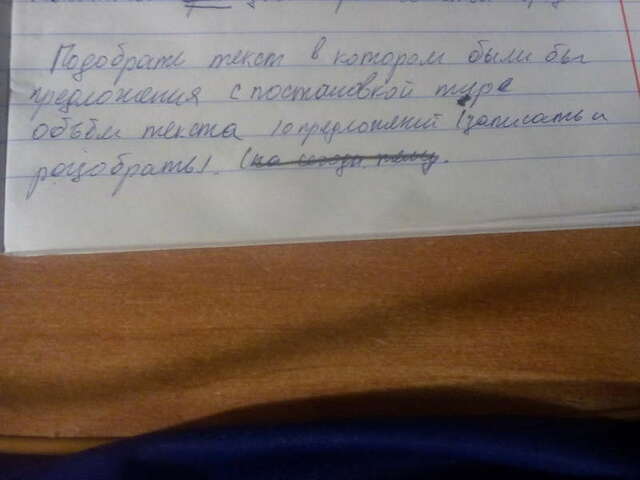 Подобрать текст в котором были бы
предложения с постановкой тире
объём текста 10 предложений (записать и
разобрать).